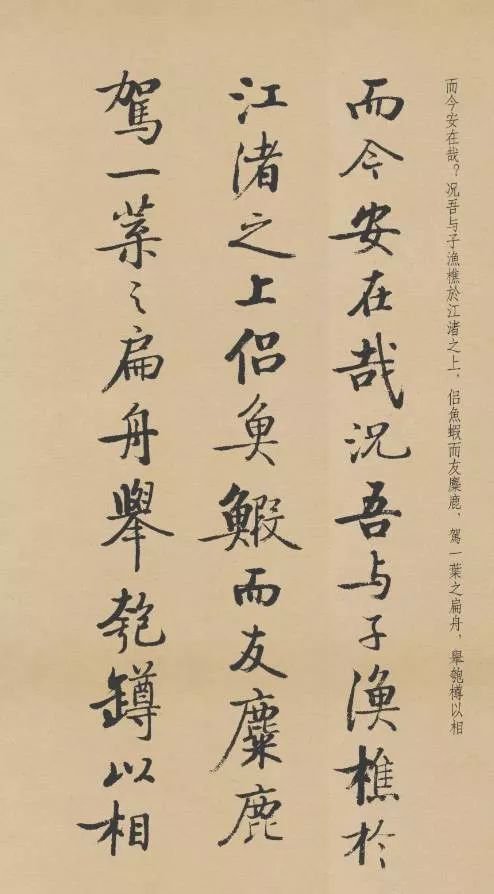 而今安在哉？况吾与子漁樵於江渚之上，侣魚蝦而友麋鹿，駕一葉之扁舟，舉匏樽以相
而今安在哉况吾与子漁樵於
江渚之上侣魚鰕而友麋鹿
駕一葉之扁舟舉匏罇以相